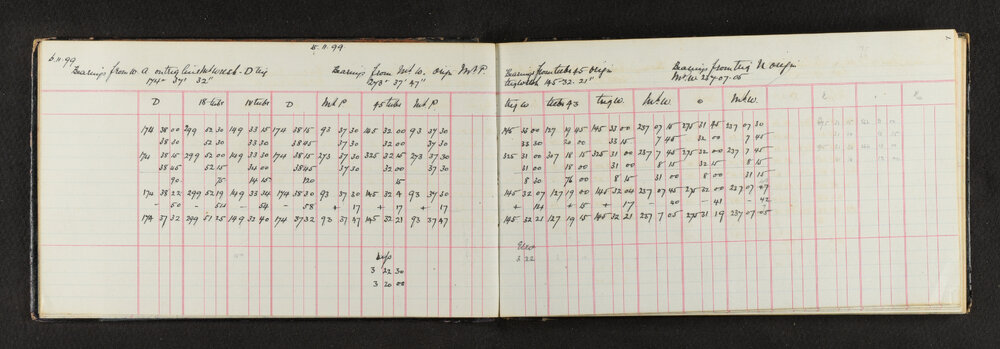 6.11.99
5.11.99
Bearings from W. A on trig line Mt Welsh - D trig
174° 37' 32"
Bearings from Mt W. Origin Mt P.
273° 37' 47"
D 18 tube 10 tube D Mt P 95 tube Mt P
174 38 00 299 52 30 149 33 15 174 38 15 93 37 30 145 32 00 93 37 30
38 30 52 30 33 30 38 45 37 30 32 00 37 30
174 38 15 299 52 00 149 33 30 174 38 15 273 37 30 325 32 15 273 37 30
38 45 52 15 34 00 38 45 37 30 32 00 37 30
90 75 14 15 120 15
174 38 22 299 52 19 149 33 34 174 38 30 93 37 30 145 32 4 93 37 30
- 50 - 54 - 54 - 58 + 17 + 17 + 17
174 37 32 299 51 25 149 32 40 174 37 32 93 37 47 145 32 21 93 37 47
3 22 30
3 20 00
7
Bearings from tube 95 Origin
trig Welsh 145-32-21"
Bearings from trig Origin
Mt W 237.07.05
trig W tube 93 trig W. Mt W. Mt W.
145 33 00 127 19 45 145 33 00 237 07 15 275 31 45 237 07 30
33 30 20 00 33 15 7 45 32 00 7 45
325 31 00 307 18 15 325 31 00 237 7 45 275 32 00 237 7 45
31 00 18 30 31 00 8 15 32 15 8 15
8 30 76 00 8 15 31 00 8 00 31 00
145 32 07 127 19 00 145 32 04 237 07 45 275 32 00 237 07 47
+ 14 + 15 + 17 - 40 - 41 - 42
145 32 21 127 19 15 145 32 21 237 7 05 275 31 19 237 07 05
3 22